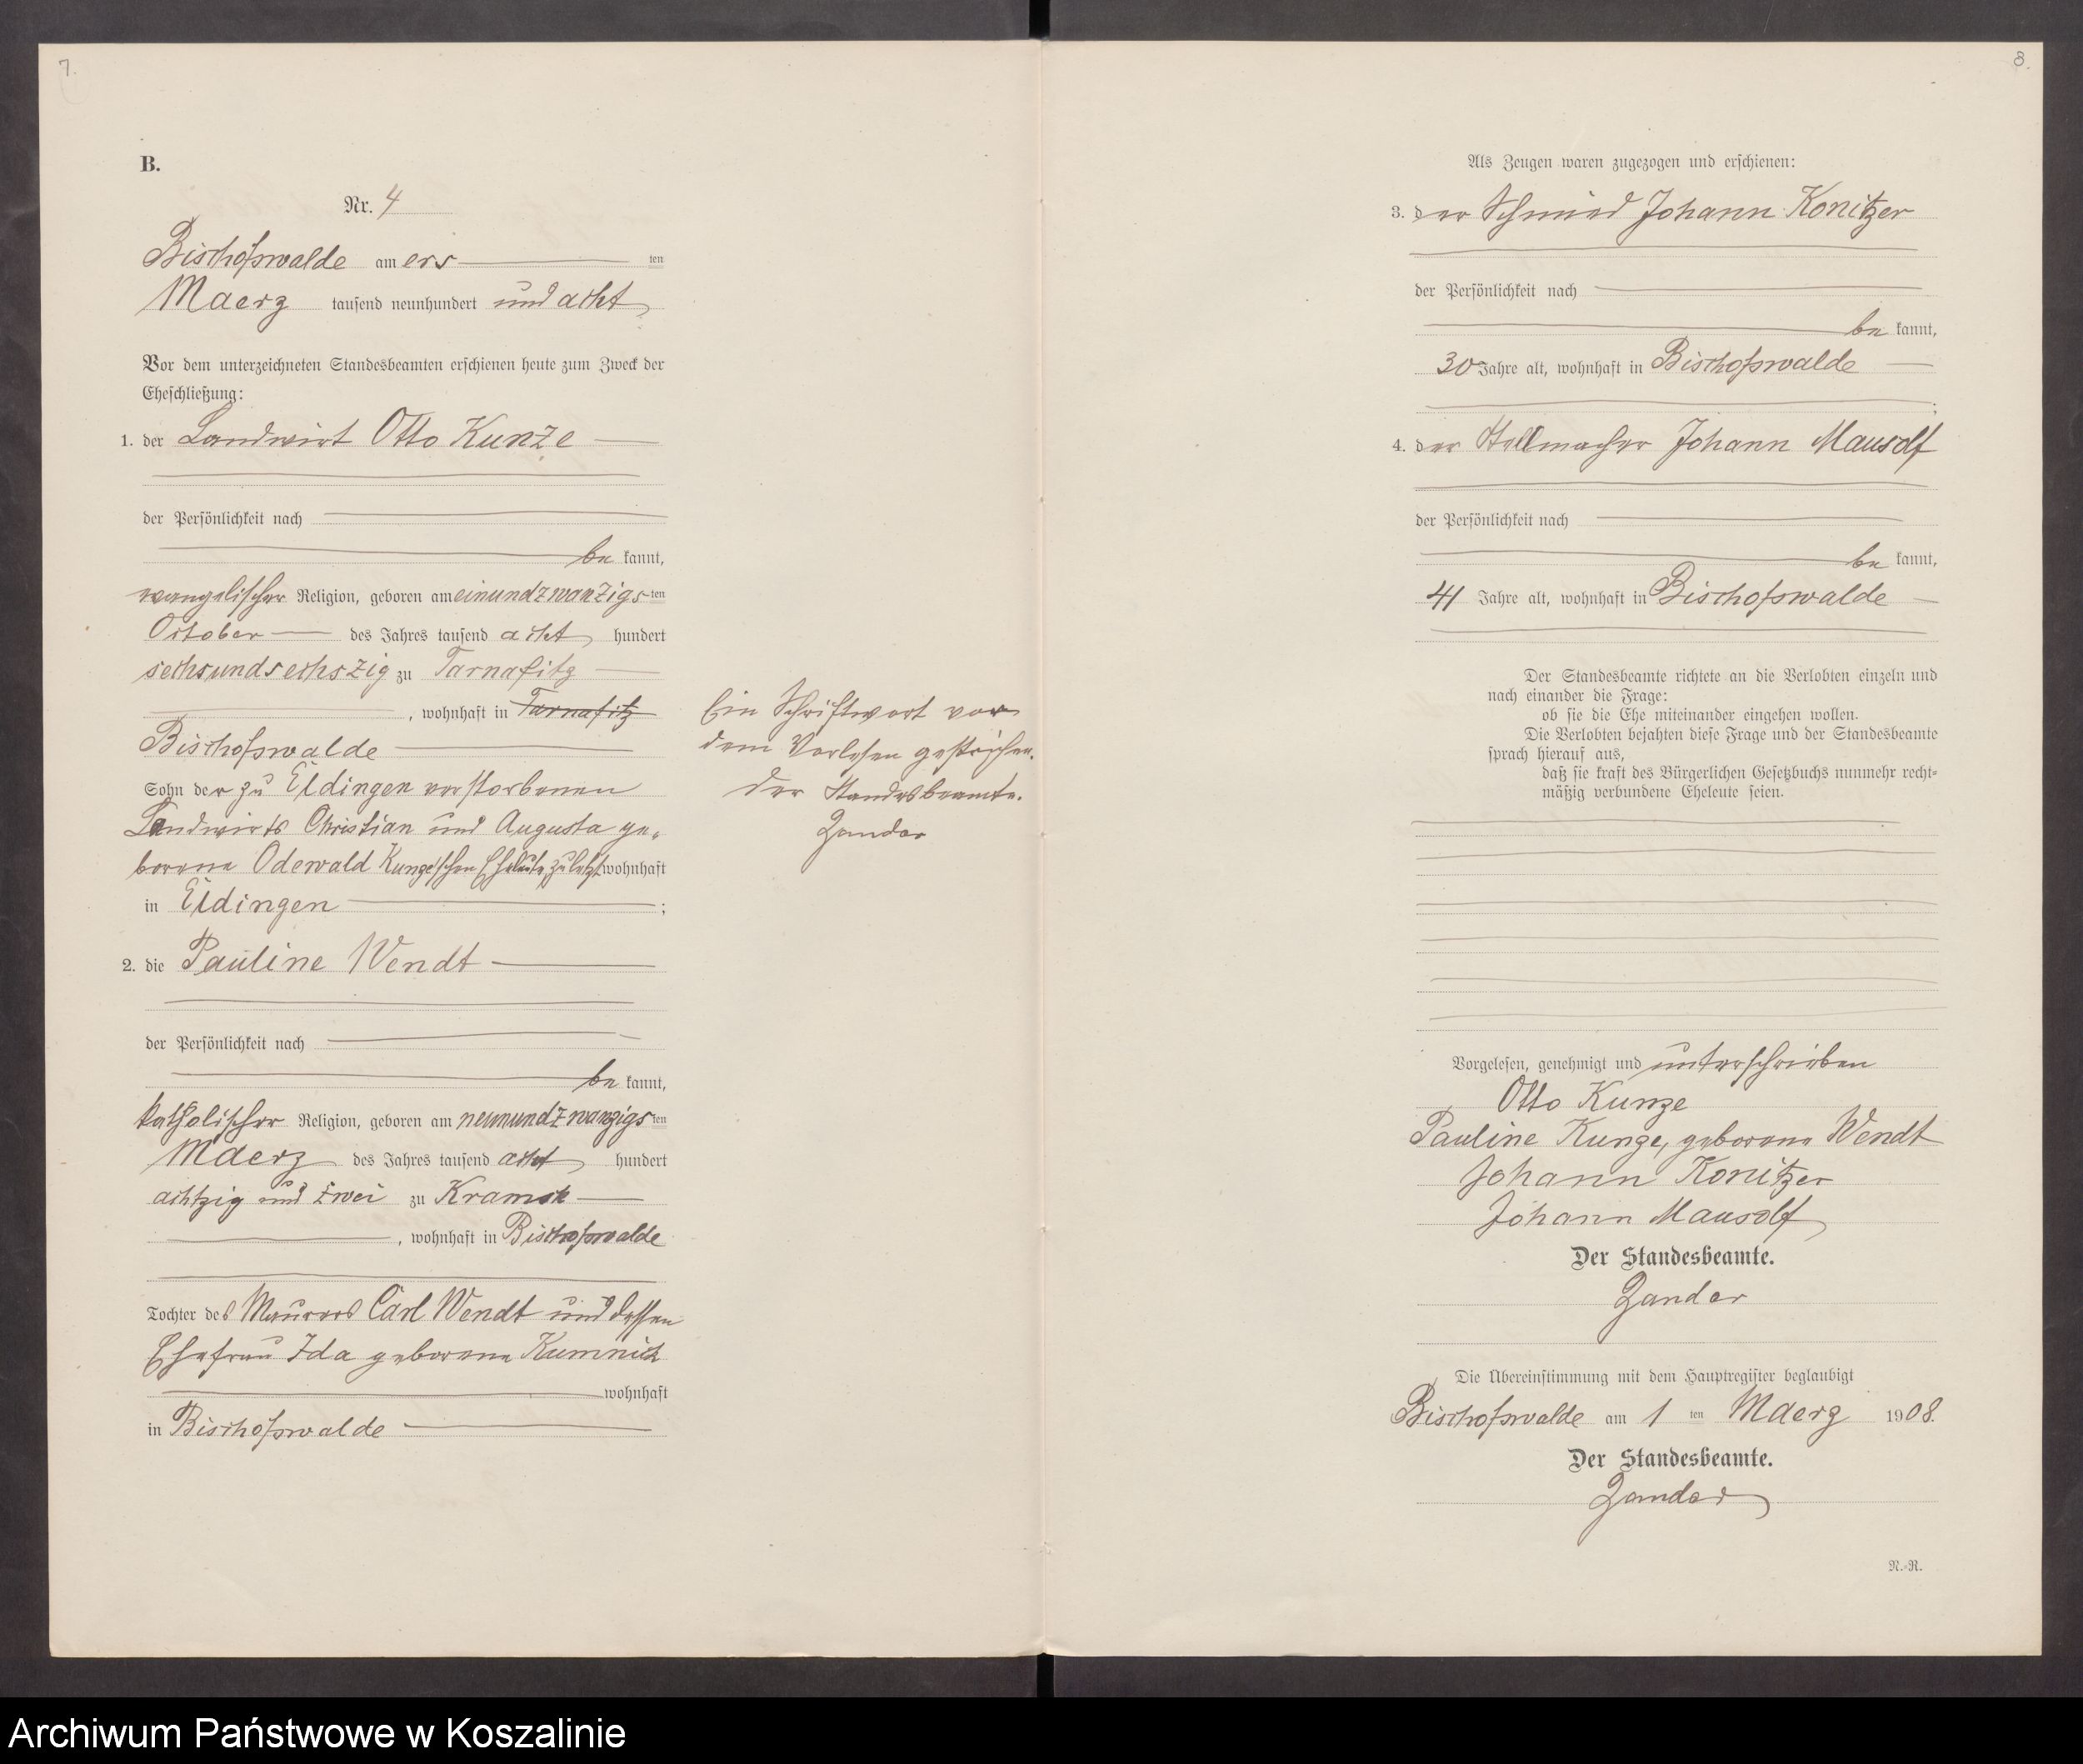 7.
B.
Nr. 4
Bischofswalde am ers ten
Maerz tausend neunhundert und acht
Vor dem unterzeichneten Standesbeamten erschienen heute zum Zweck der
Eheschließung:
1. der Landwirt Otto Kunze
der Persönlichkeit nach
be kannt,
evangelischer Religion, geboren am einundzwanzigs ten
October des Jahres tausend acht hundert
sechsundsechszig zu Tarnafitz
, wohnhaft in Tarnafitz
Bischofswalde
Sohn der zu Eldingen verstorbenen
Landwirts Christian und Augusta ge-
borene Odewald Kunze'schen Eheleute, zuletzt wohnhaft
in Eldingen ;
2. die Pauline Wendt
der Persönlichkeit nach
be kannt,
katholischer Religion, geboren am neunundzwanzigs ten
Maerz des Jahres tausend acht hundert
achtzig und zwei zu Kramsk
, wohnhaft in Bischofswalde
Tochter des Maurers Carl Wendt und dessen
Ehefrau Ida geborene Kumnick
wohnhaft
in Bischofswalde
Ein Schriftwort vor
dem Vorlesen gestrichen.
Der Standesbeamte.
Zander
8.
Als Zeugen waren zugezogen und erschienen:
3. der Schmied Johann Konitzer
der Persönlichkeit nach
be kannt,
30 Jahre alt, wohnhaft in Bischofswalde
;
4. der Stellmacher Johann Mausolf
der Persönlichkeit nach
be kannt,
41 Jahre alt, wohnhaft in Bischofswalde
Der Standesbeamte richtete an die Verlobten einzeln und
nach einander die Frage:
ob sie die Ehe miteinander eingehen wollen.
Die Verlobten bejahten diese Frage und der Standesbeamte
sprach hierauf aus,
daß sie kraft des Bürgerlichen Gesetzbuchs nunmehr recht-
mäßig verbundene Eheleute seien.
Vorgelesen, genehmigt und unterschrieben
Otto Kunze
Pauline Kunze, geborene Wendt
Johann Konitzer
Johann Mausolf
Der Standesbeamte.
Zander
Die Übereinstimmung mit dem Hauptregister beglaubigt
Bischofswalde am 1 ten Maerz 1908.
Der Standesbeamte.
Zander
N.-R.
Archiwum Państwowe w Koszalinie